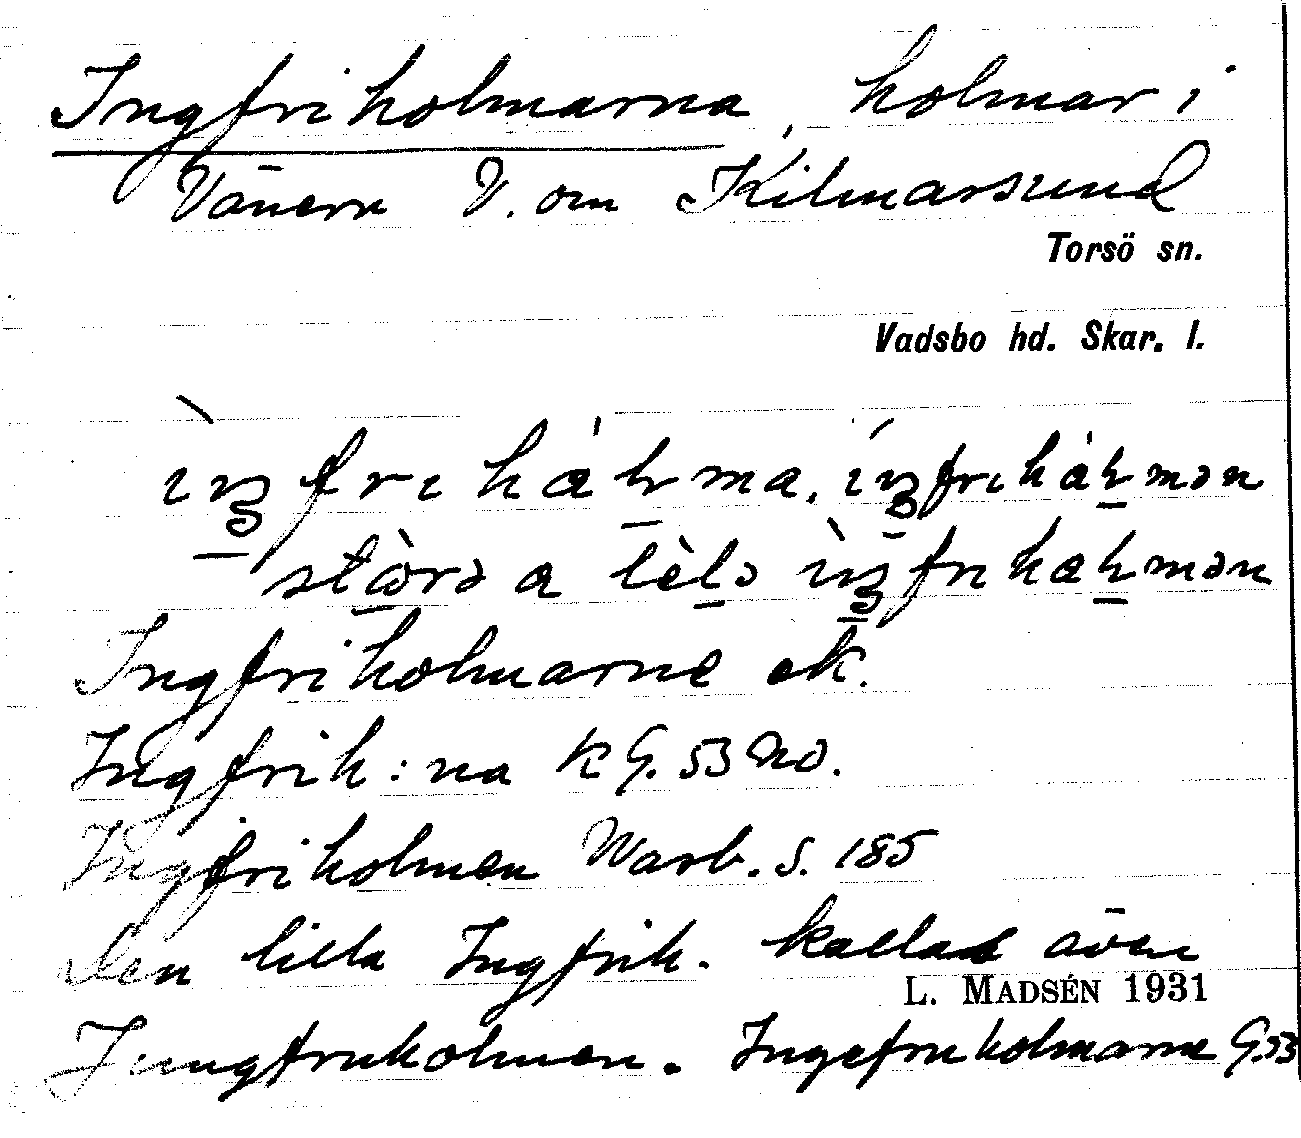 Ingfriholmarna, holmar i
Vänern V. om Kilmarsund
Torsö sn.
Vadsbo hd. Skar. l.
ìŋfrihåɫma, íŋfrihåɫmən
stòrə a lèlə ìŋfrihåɫmən
Ingfriholmarne ek.
Ingfrih:na k G. 53 No.
Ingfriholmen Warb. S. 185
den lilla Ingfrih. kallas även
L. MADSÉN 1931
Jungfruholmen. Ingefruholmarne G.53